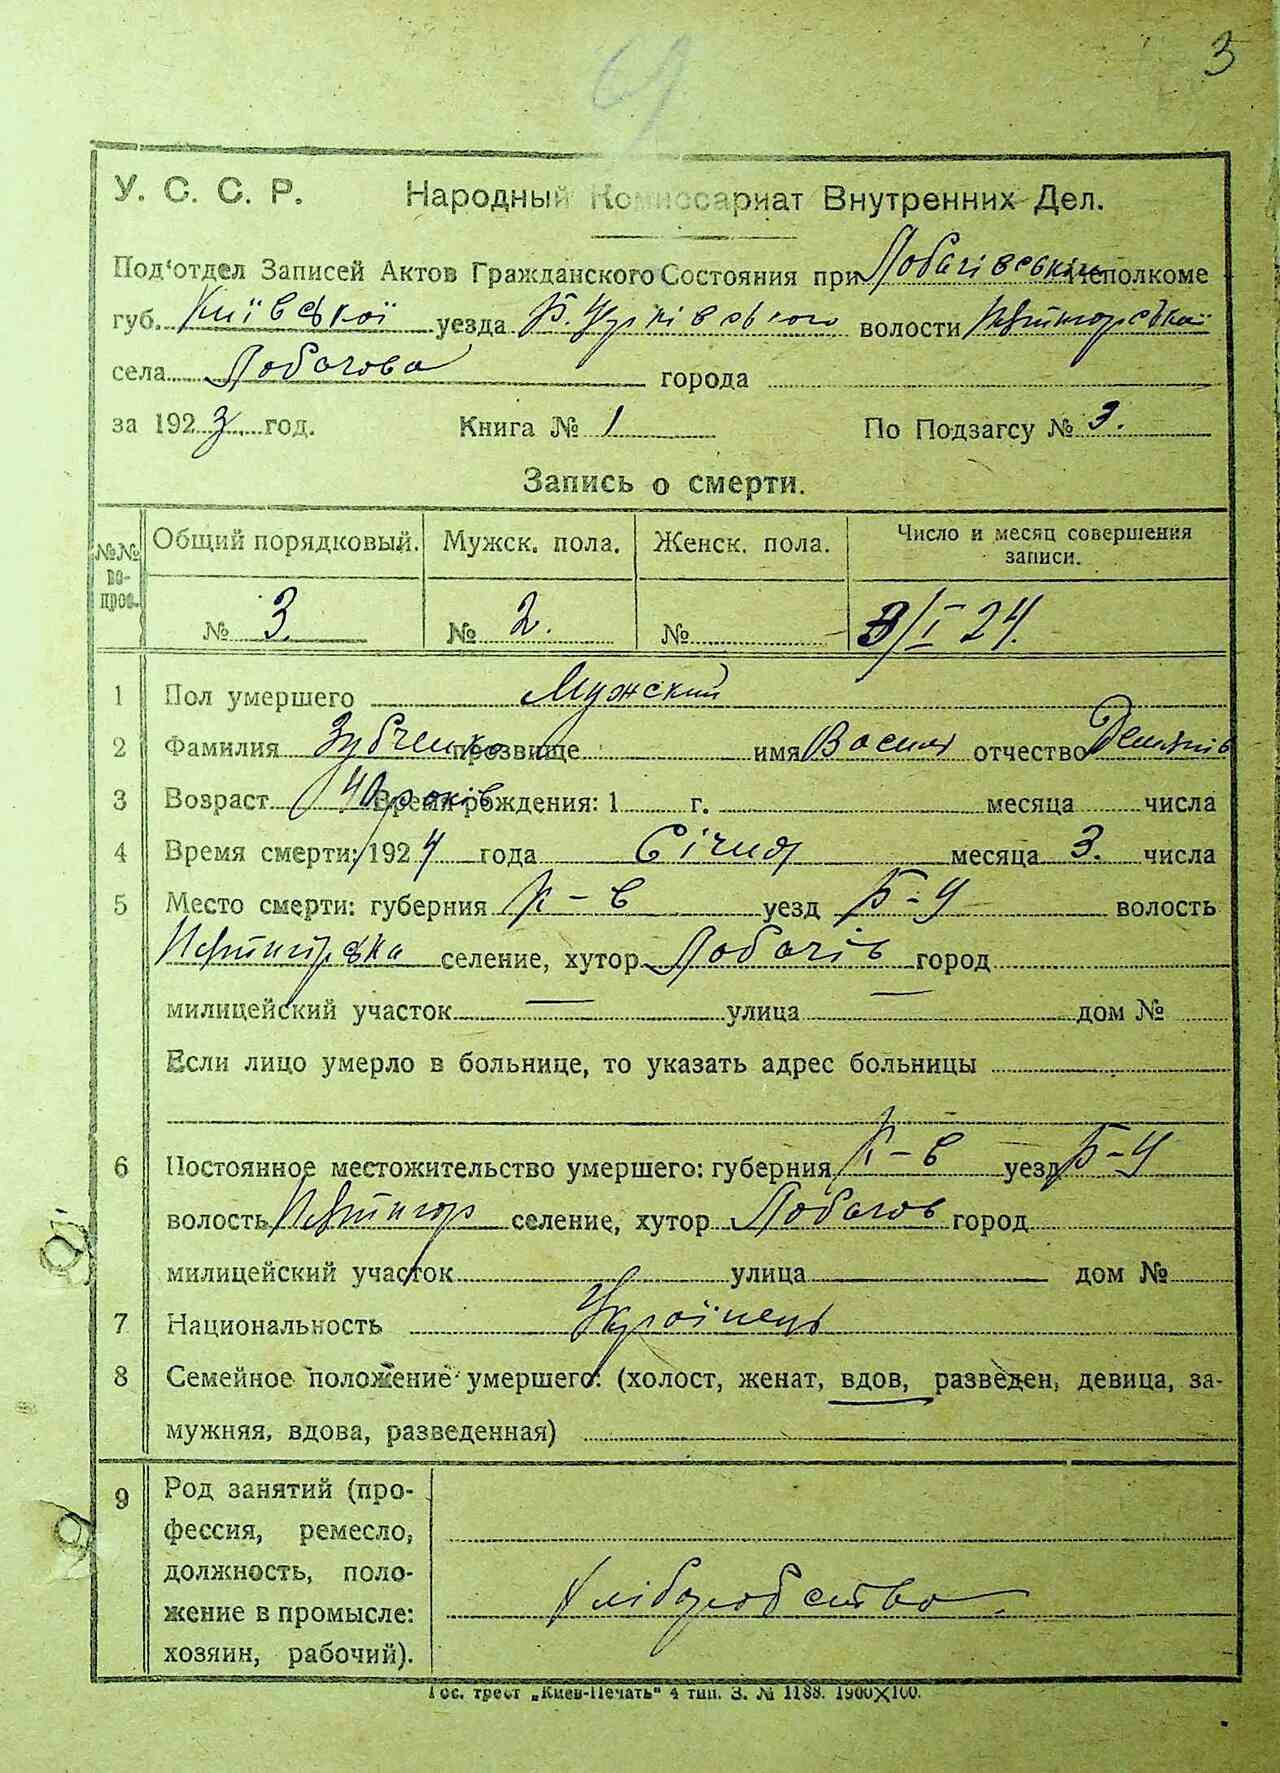 3
У. С. С. Р. Народный Комиссариат Внутренних Дел.
Под'отдел Записей Актов Гражданского Состояния при Лобачівськім Исполкоме
губ. Київської уезда Б. Церківського волости
села Лобачова города
за 1923 год. Книга № 1 По Подзагсу № 3.
Запись о смерти.
№№ вопрос. Общий порядковый. Мужск. пола. Женск. пола. Число и месяц совершения записи.
№ 3. № 2. № 3/I 24.
1 Пол умершего Мужский
2 Фамилия Зубченко прозвище имя Василь отчество
3 Возраст 40 років Время рождения: 1 г. месяца числа
4 Время смерти: 1924 года Січня месяца 3. числа
5 Место смерти: губерния К-в уезд Б-Ц волость
селение, хутор Лобачів город
милицейский участок — улица — дом №
Если лицо умерло в больнице, то указать адрес больницы
6 Постоянное местожительство умершего: губерния К-в уезд Б-Ц
волость селение, хутор Лобачов город
милицейский участок улица дом №
7 Национальность Українець
8 Семейное положение умершего: (холост, женат, вдов, разведен, девица, за-
мужняя, вдова, разведенная)
9 Род занятий (про-
фессия, ремесло,
должность, поло-
жение в промысле:
хозяин, рабочий).
Хліборобство
Гос. трест „Киев-Печать" 4 тип. З. № 1188. 1900×100.